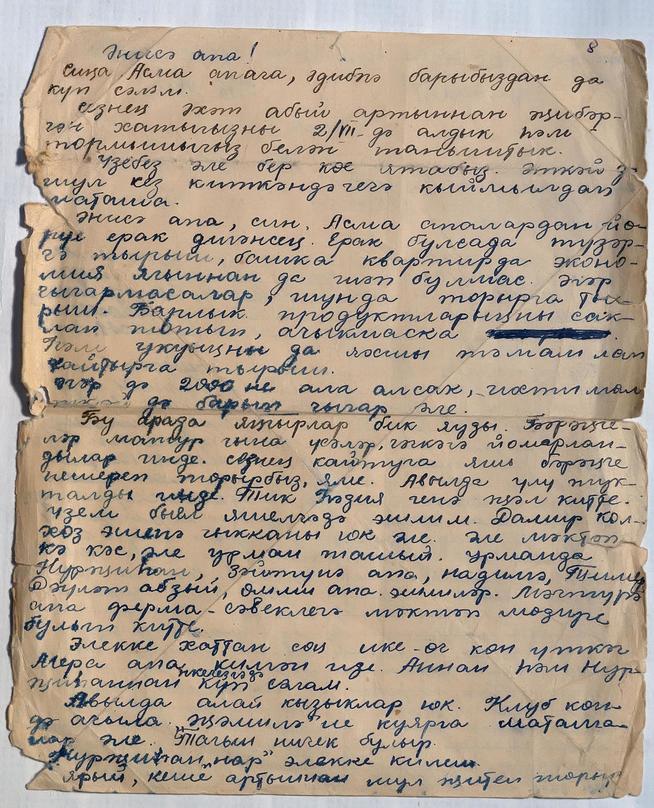 Энисә апа! 8
Сиңа, Асма апага, Әдибкә барыбыздан да
күп сәлам.
Сезнең Әхәт абый артыннан җибәр-
гән хатыгызны 2/VII-дә алдык һәм
тормышыгыз белән таныштык.
Үзебез әле бер көе ятабыз. Әткәй
шул сез киткәндәгечә кыймылдап
маташа.
Энисә апа, син Асма апалардан йө-
рүе ерак дигәнсең. Ерак булсада түзәр-
гә тырыш, башка квартирда эконо-
мия ягыннан да шәп булмас. Әгәр
чыгармасалар, шунда торырга ты-
рыш. Барлык продуктларыңны сак-
лап тотып, ачыкмаска
Һәм укуыңны да яхшы тәмамлап
кайтырга тырыш.
дә 2000 не ала алсак, ихтимал
дә барып чыгар әле.
Бу арада яңгырлар бик яуды. Бәрәңге-
ләр матур гына үсәләр, чәчкәгә йомарлан-
дылар инде. Сезнең кайтуга яшь бәрәңге
пешереп торырбыз, яме. Авылда үлү тук-
талды инде. Тик Рәзия генә үлеп китте.
Үзем быел яшелчәдә эшлим. Дамир кол-
хоз эшенә чыкканы юк әле. Әле мәктәп-
кә көс, әле урман ташый. Урманда
Нурҗиһан, Зәйтүнә апа, Надимә, Тимер
Дәүләт абзый, апа эшлиләр. Мәгъмурә
апа ферма-сәвеклегә мөдире
булып китте.
Элекке хаттан соң ике-өч көн үткәч
апа килгән иде. Аннан һәм Нур-
җиһаннан икегезгәдә күп сәлам.
Авылда алай кызыклар юк. Клуб көн-
дә ачыла. "Җәмилә" не куярга маташа-
лар әле. Тагын ничек булыр.
Нурҗиһан "нар" элекке килеш.
Ярый, кеше артыннан шул җитеп торыр